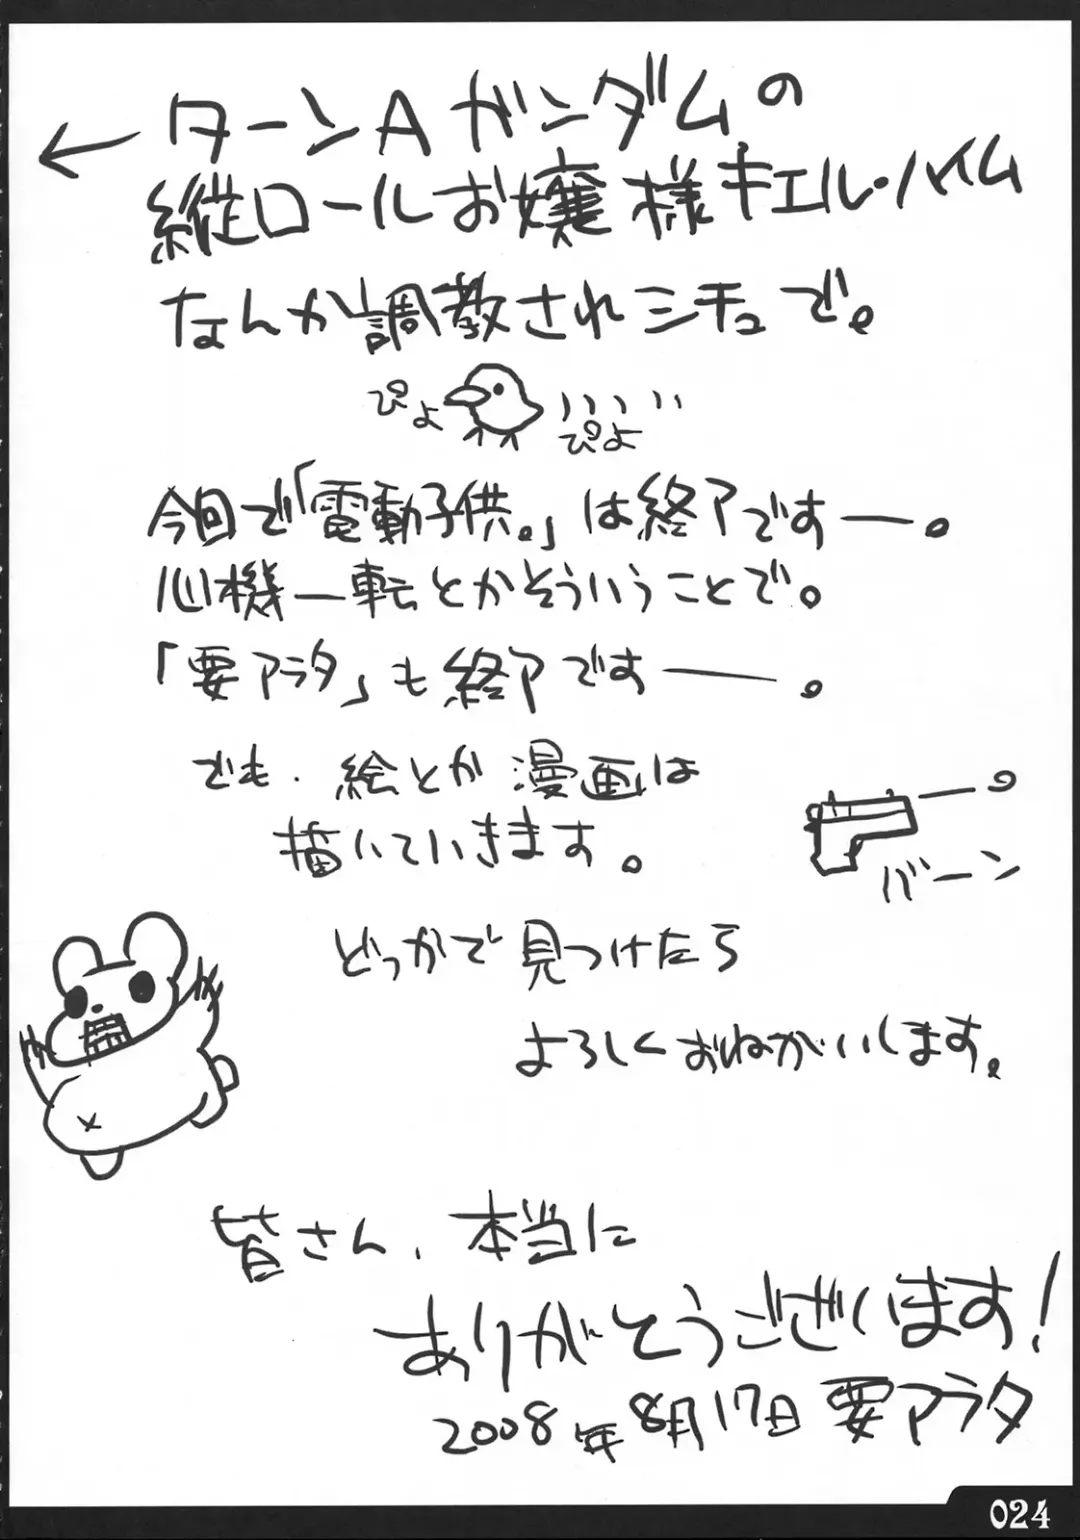 ←ターンAガンダムの
縦ロールお嬢様キエル・ハイム
なんか調教されシチュで。
ぴよ
ぴよ
今回で「電動子供。」は終了ですー。
心機一転とかそういうことで。
「要アラタ」も終了ですー。
でも、絵とか漫画は
描いていきます。
バーン
どっかで見つけたら
よろしくおねがいします。
皆さん、本当に
ありがとうございます!
2008年8月17日 要アラタ
024